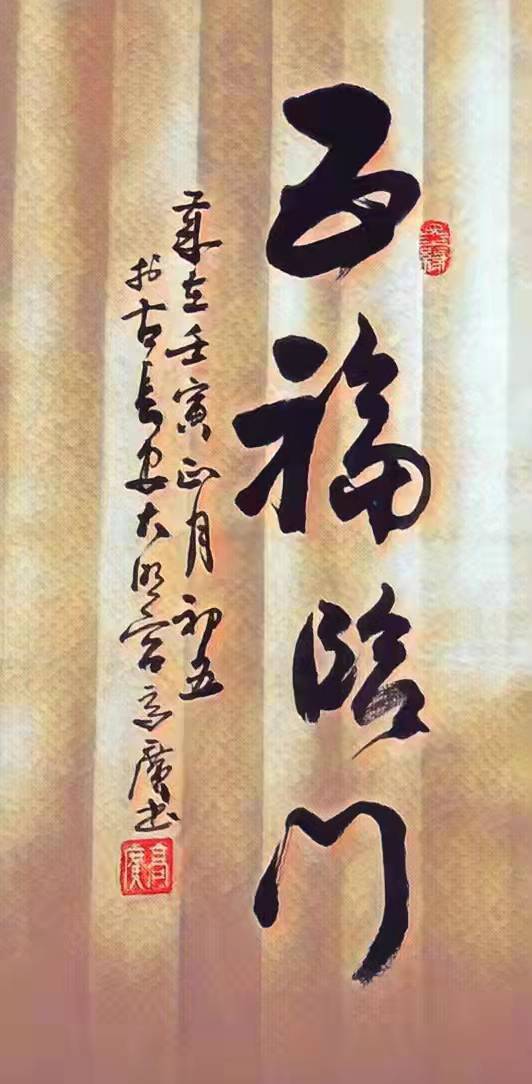 五福臨门
歲在壬寅正月初五
於古長安大明宮高廣書
高廣